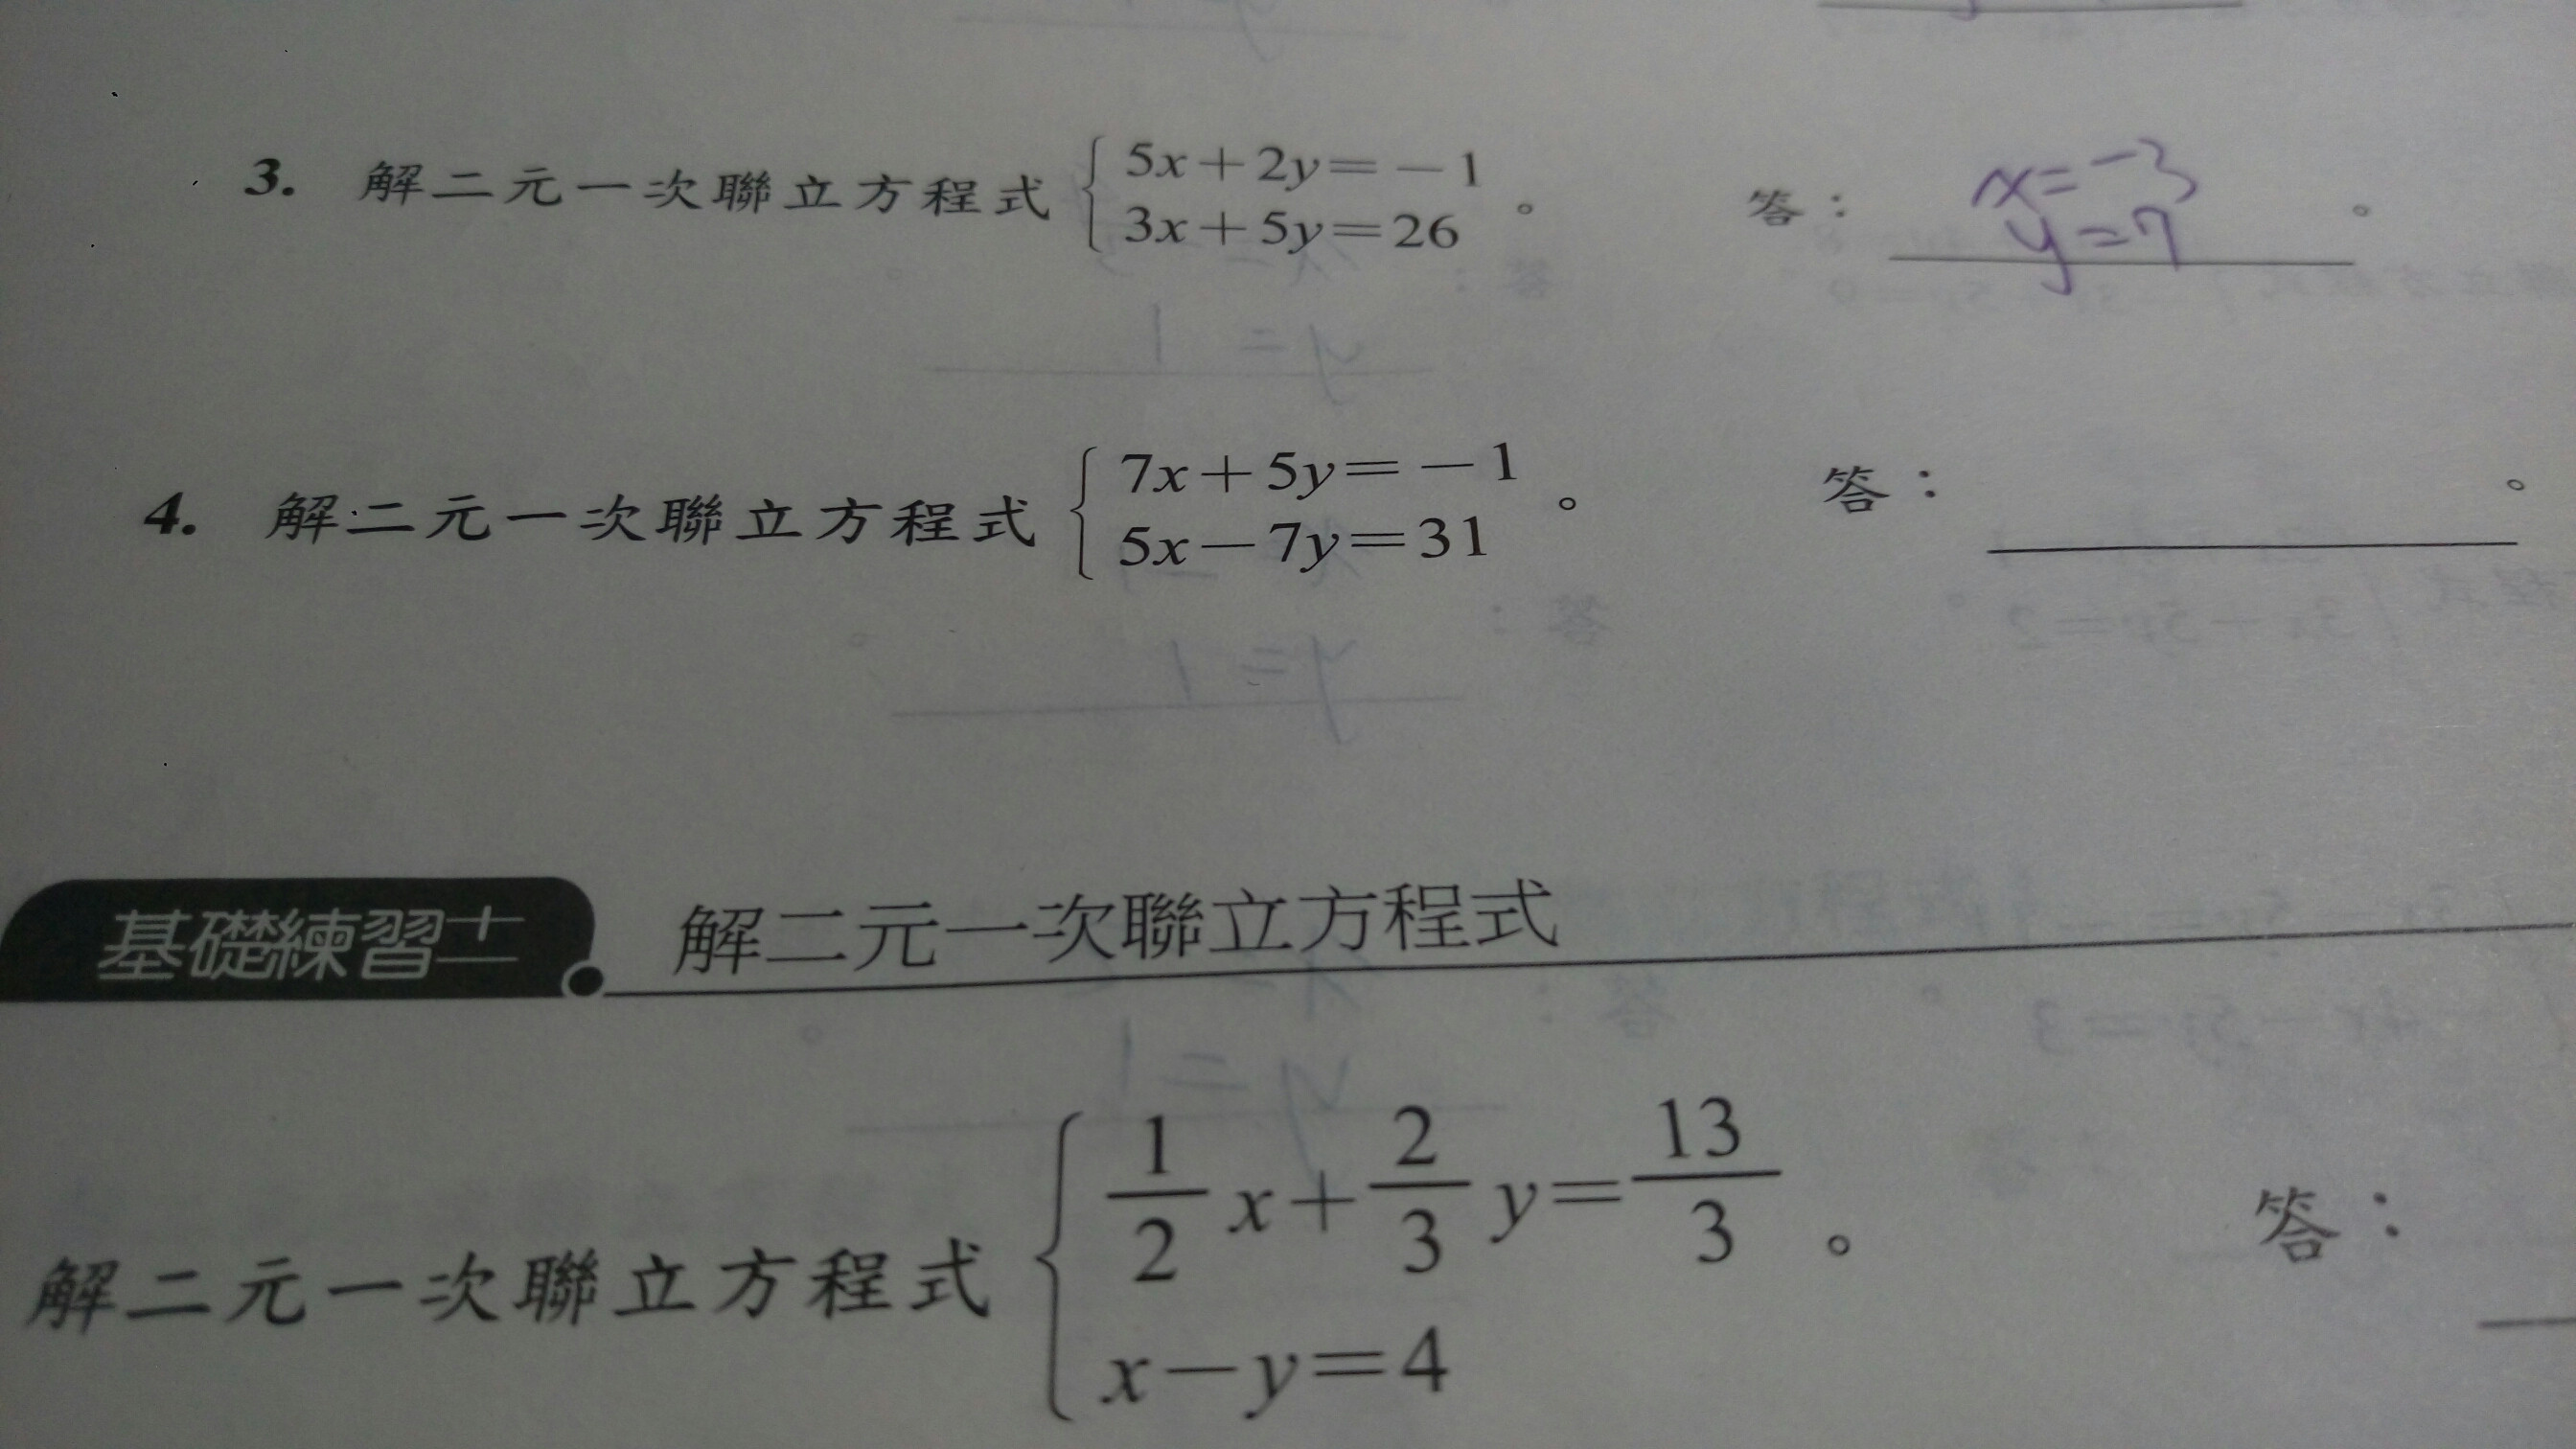 3. 解二元一次聯立方程式 { 5x+2y=-1 3x+5y=26 。 答: x=-3 y=7 。
4. 解二元一次聯立方程式 { 7x+5y=-1 5x-7y=31 。 答: 。
基礎練習十二 解二元一次聯立方程式
解二元一次聯立方程式 { 1/2 x+ 2/3 y= 13/3 x-y=4 。 答: